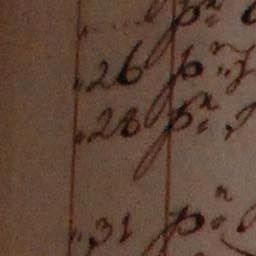 pr
26 pr
28 pr
31 pr